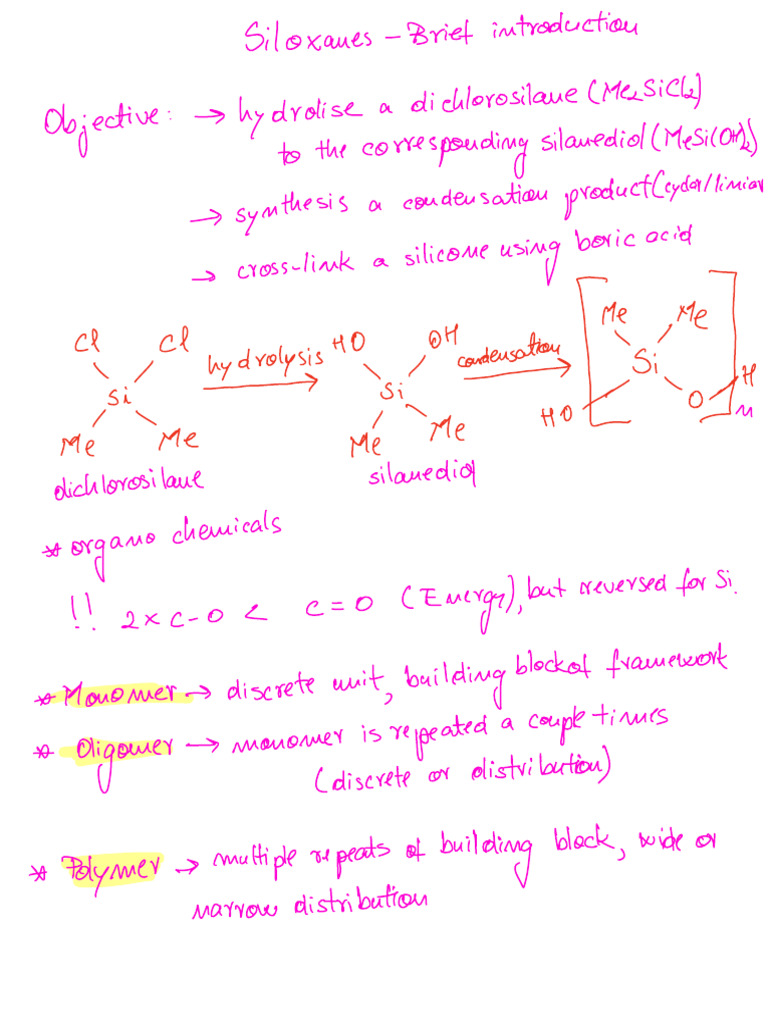 Siloxanes – Brief introduction
Objective: → hydrolise a dichlorosilane (Me₂SiCl₂)
to the corresponding silanediol (MeSi(OH)₂)
→ synthesis a condensation product (cyclar/liniar
→ cross-link a silicone using boric acid
Cl Cl hydrolysis HO OH condensation Me Me
Si Si Si
Me Me Me Me HO O H n
dichlorosilane silanediol
* organo chemicals
!! 2 x C-O < C=O (Energy), but reversed for Si.
* Monomer → discrete unit, building block of framework
* Oligomer → monomer is repeated a couple times
(discrete or distribution)
* Polymer → multiple repeats of building block, wide or
narrow distribution